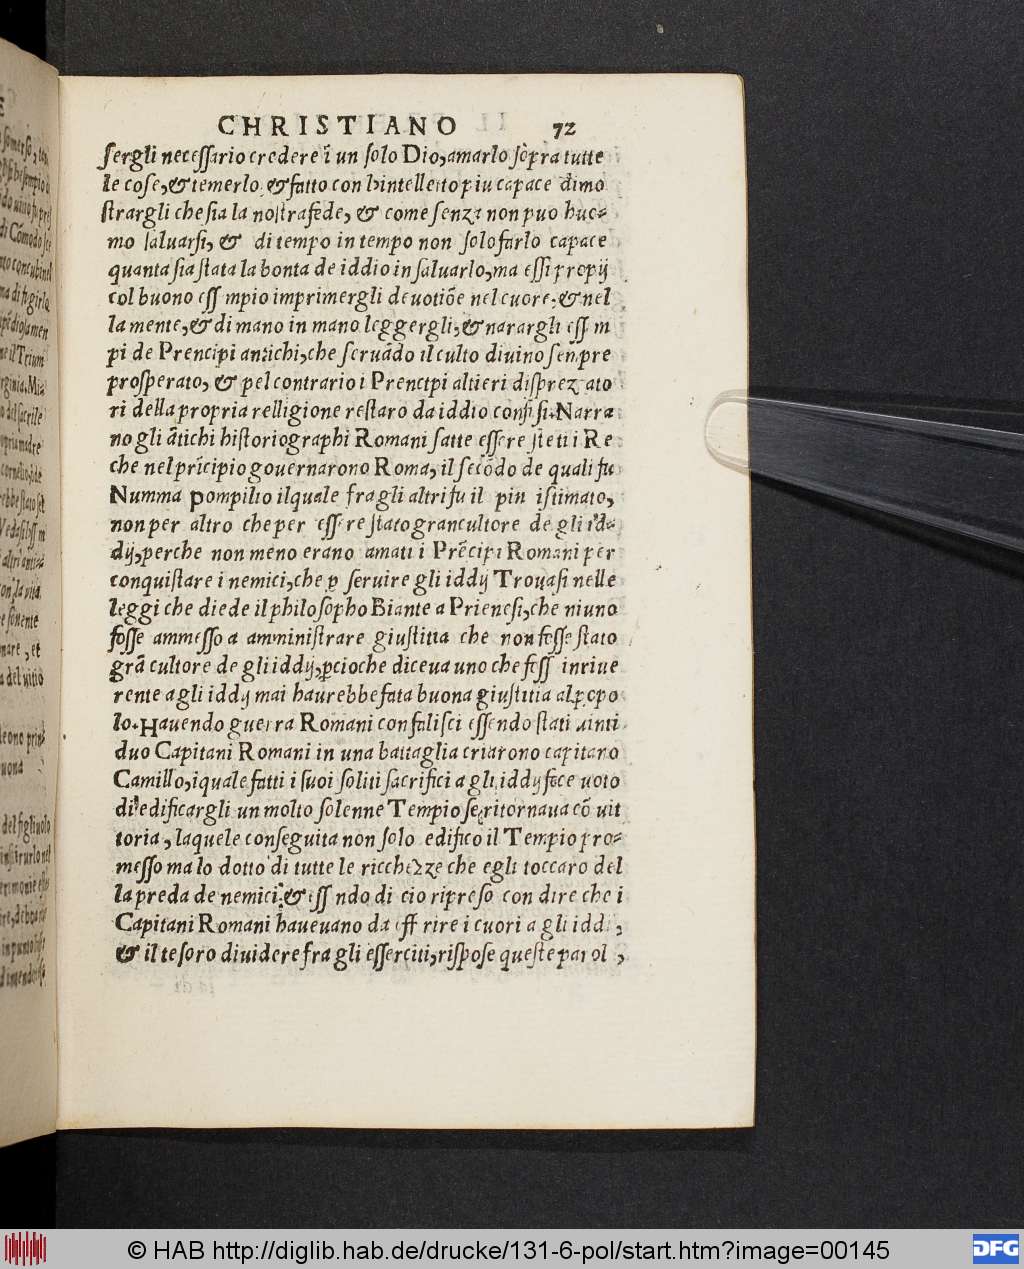 CHRISTIANO 72
sergli necessario credere ĩ un solo Dio, amarlo sopra tutte
le cose, & temerlo. & fatto con l'intelletto piu capace dimo
strargli che sia la nostra fede, & come senza non puo huo-
mo saluarsi, & di tempo in tempo non solo farlo capace
quanta sia stata la bonta de iddio in saluarlo, ma essi propij
col buono ess mpio imprimergli deuotiõe nel cuore. & nel
la mente, & di mano in mano leggergli, & narargli ess m
pi de Prencipi antichi, che seruãdo il culto diuino sempre
prosperato, & pel contrario i Prencipi altieri disprez ato
ri della propria relligione restaro da iddio confusi. Narra
no gli ãtichi historiographi Romani satte essere steti i Re
che nel prĩcipio gouernarono Roma, il secõdo de quali fu
Numma pompilio ilquale fra gli altri fu il piu istimato,
non per altro che per essere stato gran cultore de gli id-
dij, perche non meno erano amati i Prẽcipi Romani per
conquistare i nemici, che ꝑ seruire gli iddij Trouasi nelle
leggi che diede il philosopho Biante a Prienesi, che niuno
fosse ammesso a amministrare giustitia che non fosse stato
grã cultore de gli iddij, ꝑcioche diceua uno che foss inriue
rente a gli iddij mai haurebbe fata buona giustitia al ꝑopo
lo. Hauendo guerra Romani con falisci essendo stati uinti
duo Capitani Romani in una battaglia criarono capitano
Camillo, iquale fatti i suoi soliti sacrifici a gli iddij fece uoto
di edificargli un molto solenne Tempio se ritornaua cõ uit
toria, laquele conseguita non solo edifico il Tempio pro-
messo ma lo dotto di tutte le ricchezze che egli toccaro del
la preda de nemici: & ess ndo di cio ripreso con dire che i
Capitani Romani haueuano da off rire i cuori a gli idd ,
& il tesoro diuidere fra gli esserciti, rispose queste parol ,
© HAB http://diglib.hab.de/drucke/131-6-pol/start.htm?image=00145
DFG